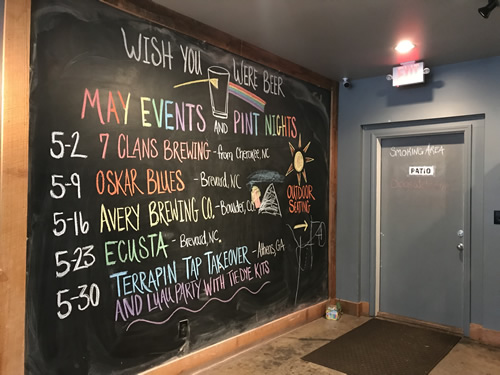 WISH YOU WERE BEER
MAY EVENTS AND PINT NIGHTS
5-2 7 CLANS BREWING - from Cherokee, NC
5-9 OSKAR BLUES - Brevard, NC
5-16 AVERY BREWING CO. - Boulder, CO
5-23 ECUSTA - Brevard, NC.
5-30 TERRAPIN TAP TAKEOVER - Athens, GA
AND LUAU PARTY WITH TIE DYE KITS
OUTDOOR
SEATING
EXIT
SMOKING AREA
PATIO